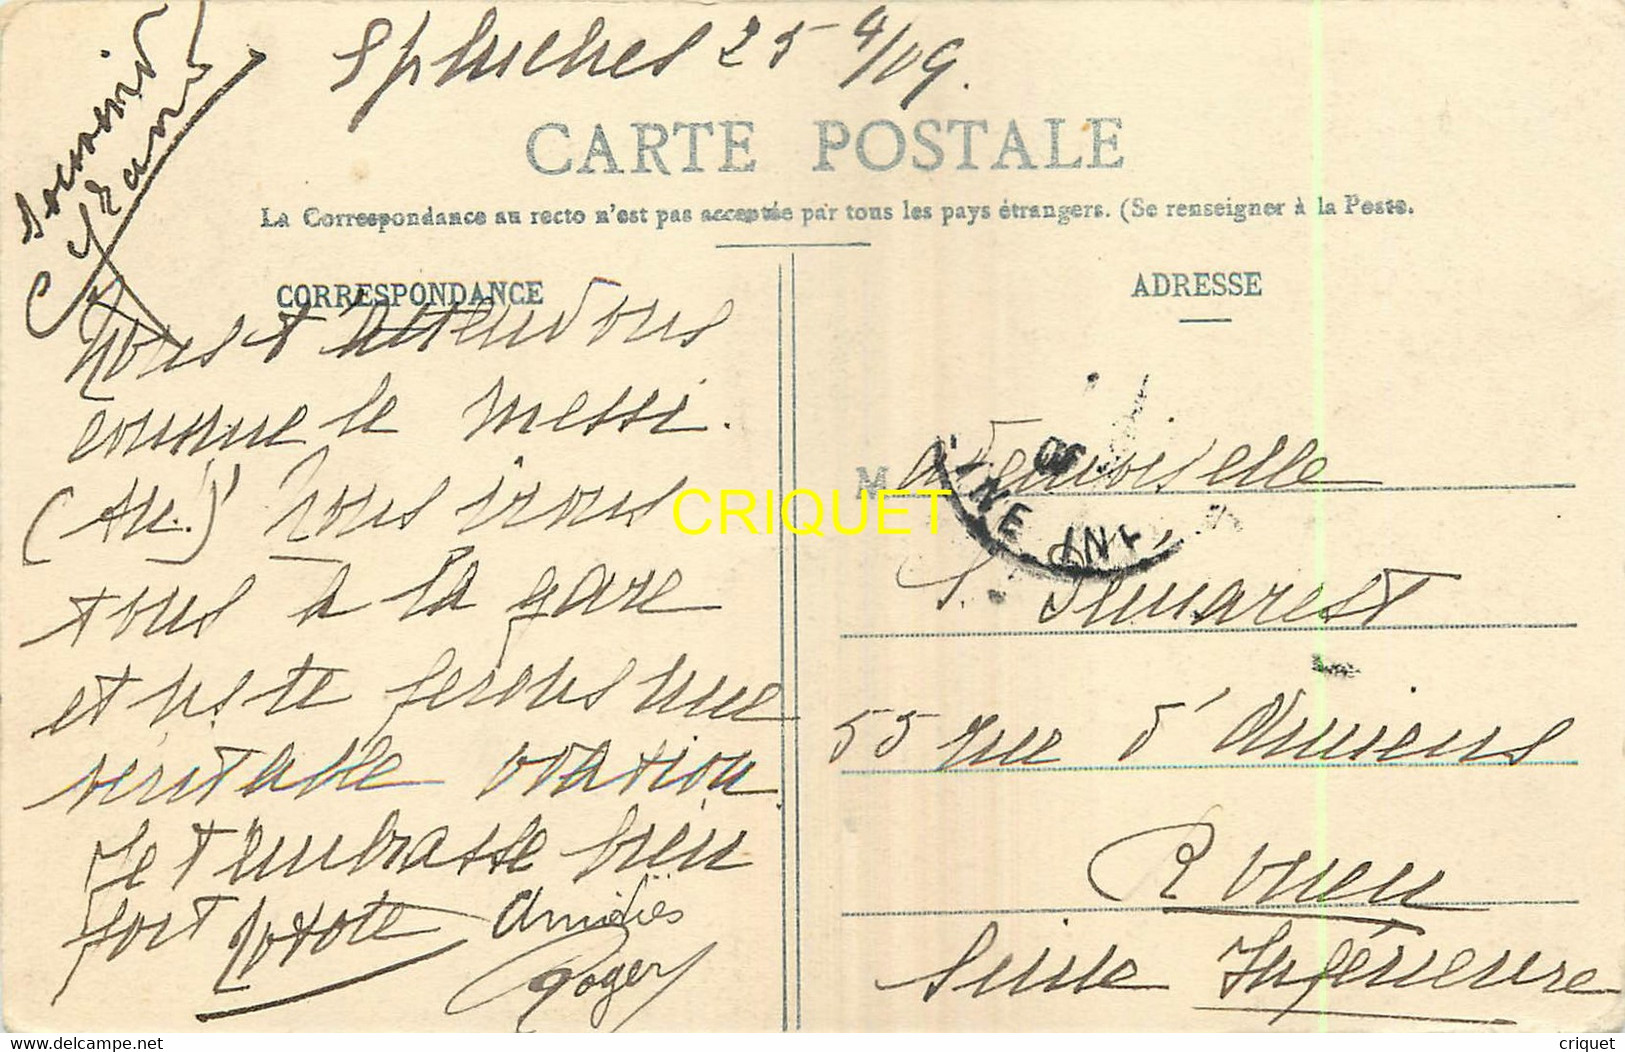 25 4/09.
Souvenir
CARTE POSTALE
La Correspondance au recto n'est pas acceptée par tous les pays étrangers. (Se renseigner à la Poste.
CORRESPONDANCE
Nous t'attendons
comme le Messi.
(Au!)' nous irons
tous à la gare
et ns te ferons une
véritable ovation
Je t'embrasse bien
fort Totote
Amitiés
Roger
ADRESSE
Mademoiselle
S. Demarest
55 rue d'Amiens
Rouen
Seine Inférieure
INE INF
CRIQUET
delcampe.net
criquet